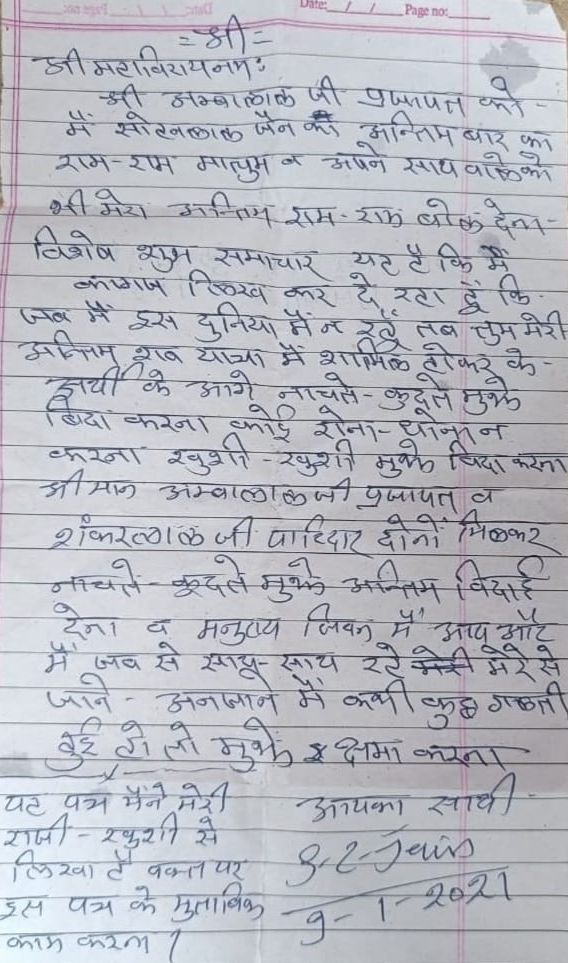 Date: __/__/__ Page no: ____
=श्री=
श्री महाविरायनमः
श्री अम्बालाल जी प्रजापत को-
मैं सोहनलाल जैन की अन्तिम बार का
राम-राम मालुम व अपने साथ वाले को
भी मेरा अन्तिम राम-राम बोल देना-
विशेष शुभ समाचार यह है कि मैं
कागज लिख कर दे रहा हूं कि-
जब मैं इस दुनिया मैं न रहूं तब तुम मेरी
अन्तिम शव यात्रा में शामिल होकर के-
अर्थी के आगे नाचते-कुदते मुझे
बिदा करना कोई रोना-धोना न
करना खुशी-खुशी मुझे विदा करना
श्रीमान अम्बालालजी प्रजापत व
शंकरलाल जी पाटिदार दोनों मिलकर
नाचते-कूदते मुझे अन्तिम विदाई
देना व मनुष्य जिवन मैं आप और
मैं जब से साथ-साथ रहे मेरे से
जाने-अनजाने में कभी कुछ गलती
हुई हो तो मुझे क्षमा करना
यह पत्र मैंने मेरी
राजी-खुशी से
लिखा है वक्त पर
इस पत्र के मुताबिक
काम करना।
आपका साथी
S-L-Jain
9-1-2021